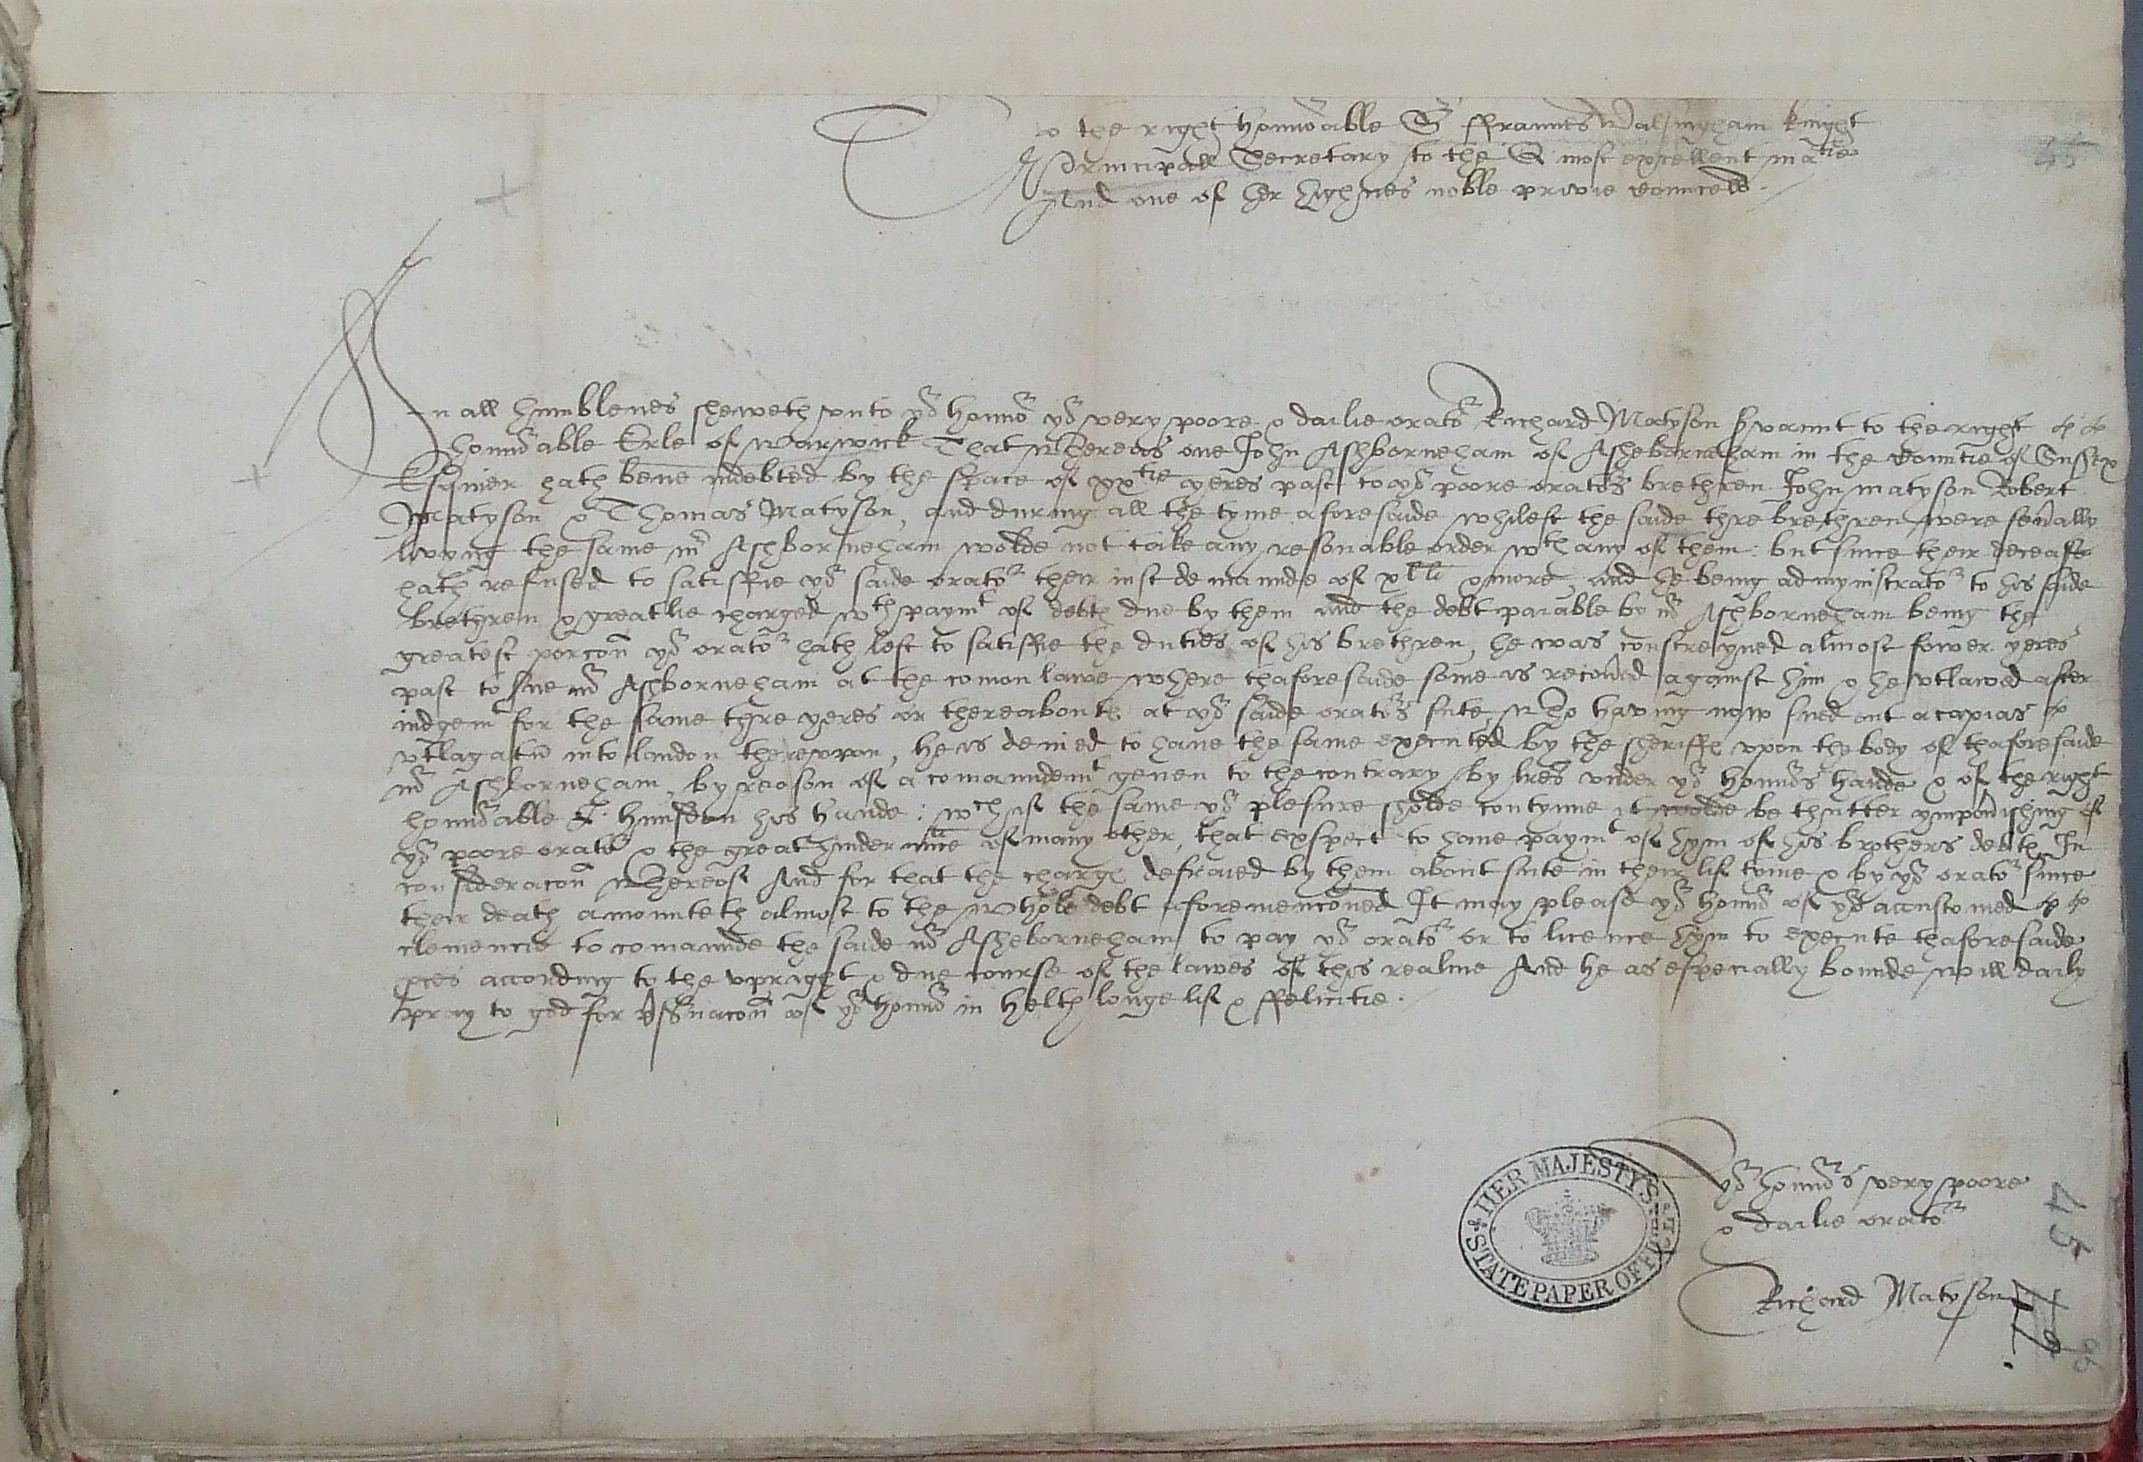 To the right honnorable Sr ffraunces Walsingham knight
Principall Secretary to the Q most excellent matie
And one of her highnes noble privie counncell.
45
In all humblenes sheweth vnto yor honnor yor very poore & dailie orator Richard Matyson srvaunt to the right
honnorable Erle of Warwick That whereas one John Ashborneham of Asheborneham in the Countie of Sussex
Esquier hath bene indebted by the space of xxtie yeres past to yor poore orators brethren John Matyson Robert
Matyson & Thomas Matyson, and during all the tyme aforesaide whilest the saide thre brethren were seually
lyvyng the same mr Ashborneham wolde not take any resonable order wth any of them: but since their deceasse
hath refused to satisffie yor saide orator their iust demaunde of & more, and he being admynistrator to his saide
brethren & greatlie charged wth paymt of debtes due by them and the debt paiable by mr Ashborneham being the
greatest porcon yor orator hath left to satisffie the duties of his brethren, he was constreyned almost fower yeres
past to sue mr Ashborneham at the comon lawe where thaforesaide some is recouered against him & he vtlawed after
iudgemt for the same thre yeres or thereaboutes at yor saide orators sute, Who having now sued out a capias
vtlagatu into london therevpon, he is denied to haue the same executed by the sheriffes vpon the body of thaforesaide
mr Ashborneham, by reason of a comaundemt geuen to the contrary by lres vnder yor honnors hande & of the right
honnorable L. Hunsdon his hande: wch if the same yor plesure sholde contynue it wolde be thutter ympourishing of
yor poore orator & the great hinderance of many other, that exspect to haue paymt of hym of his brothers debtes In
consideracon Whereof And for that the charges defraied by them about sute in their lif tyme & by yor orator since
their death amounteth almost to the Whole debt aforemenconed It may please yor honnor of yor accustomed
clemencie to comaunde the saide mr Asheborneham to pay yor orator or to licence hym to execute thaforesaide
pces according to the vpright & due course of the lawes of this realme And he as especially bounde will daily
pray to god for psruacon of yor honnor in helth longe lif & ffelicitie.
yor honnors very poore
& dailie orator
Richard Matyson
HER MAJESTY'S
STATE PAPER OFFICE
45
96